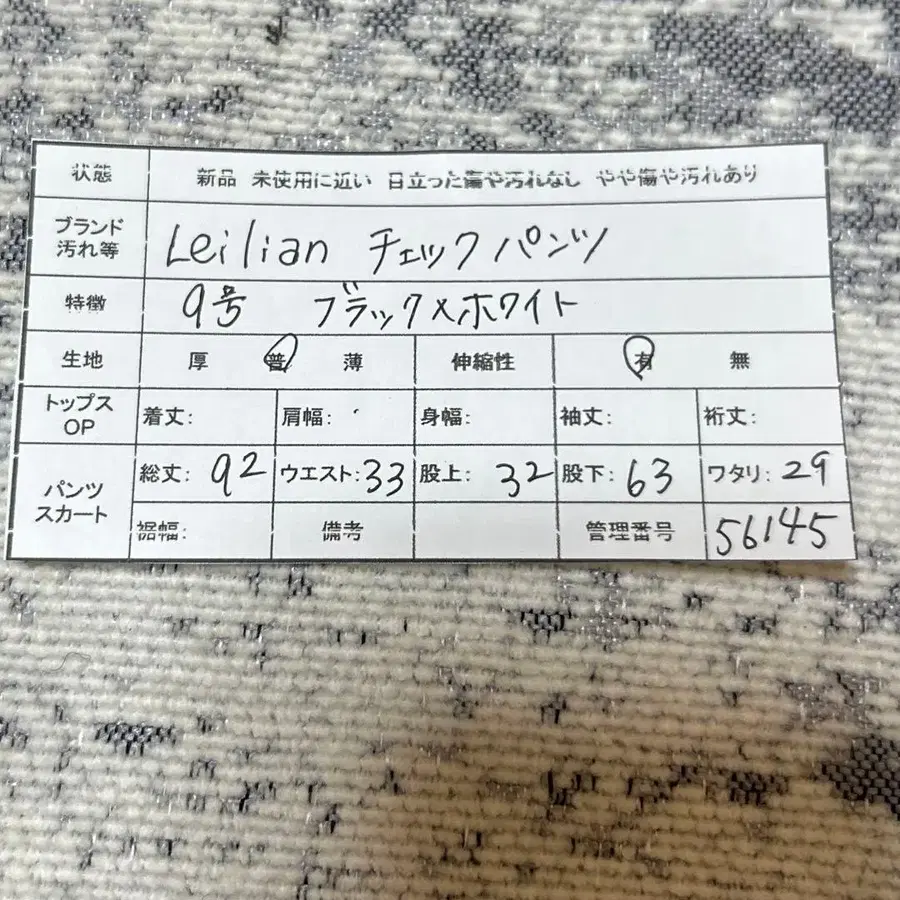 状態 新品 未使用に近い 目立った傷や汚れなし やや傷や汚れあり
ブランド 汚れ等 Leilian チェックパンツ
特徴 9号 ブラック×ホワイト
生地 厚 普 薄 伸縮性 有 無
トップス OP 着丈: 肩幅: 身幅: 袖丈: 裄丈:
パンツ スカート 総丈: 92 ウエスト: 33 股上: 32 股下: 63 ワタリ: 29
裾幅: 備考 管理番号 56145